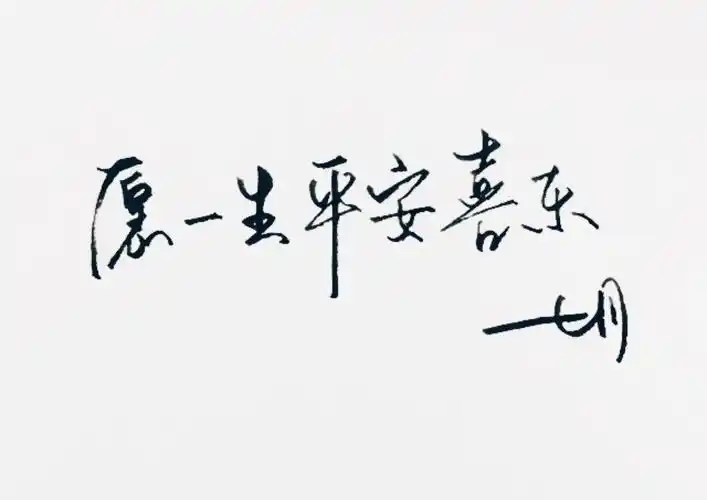 愿一生平安喜乐
—七月